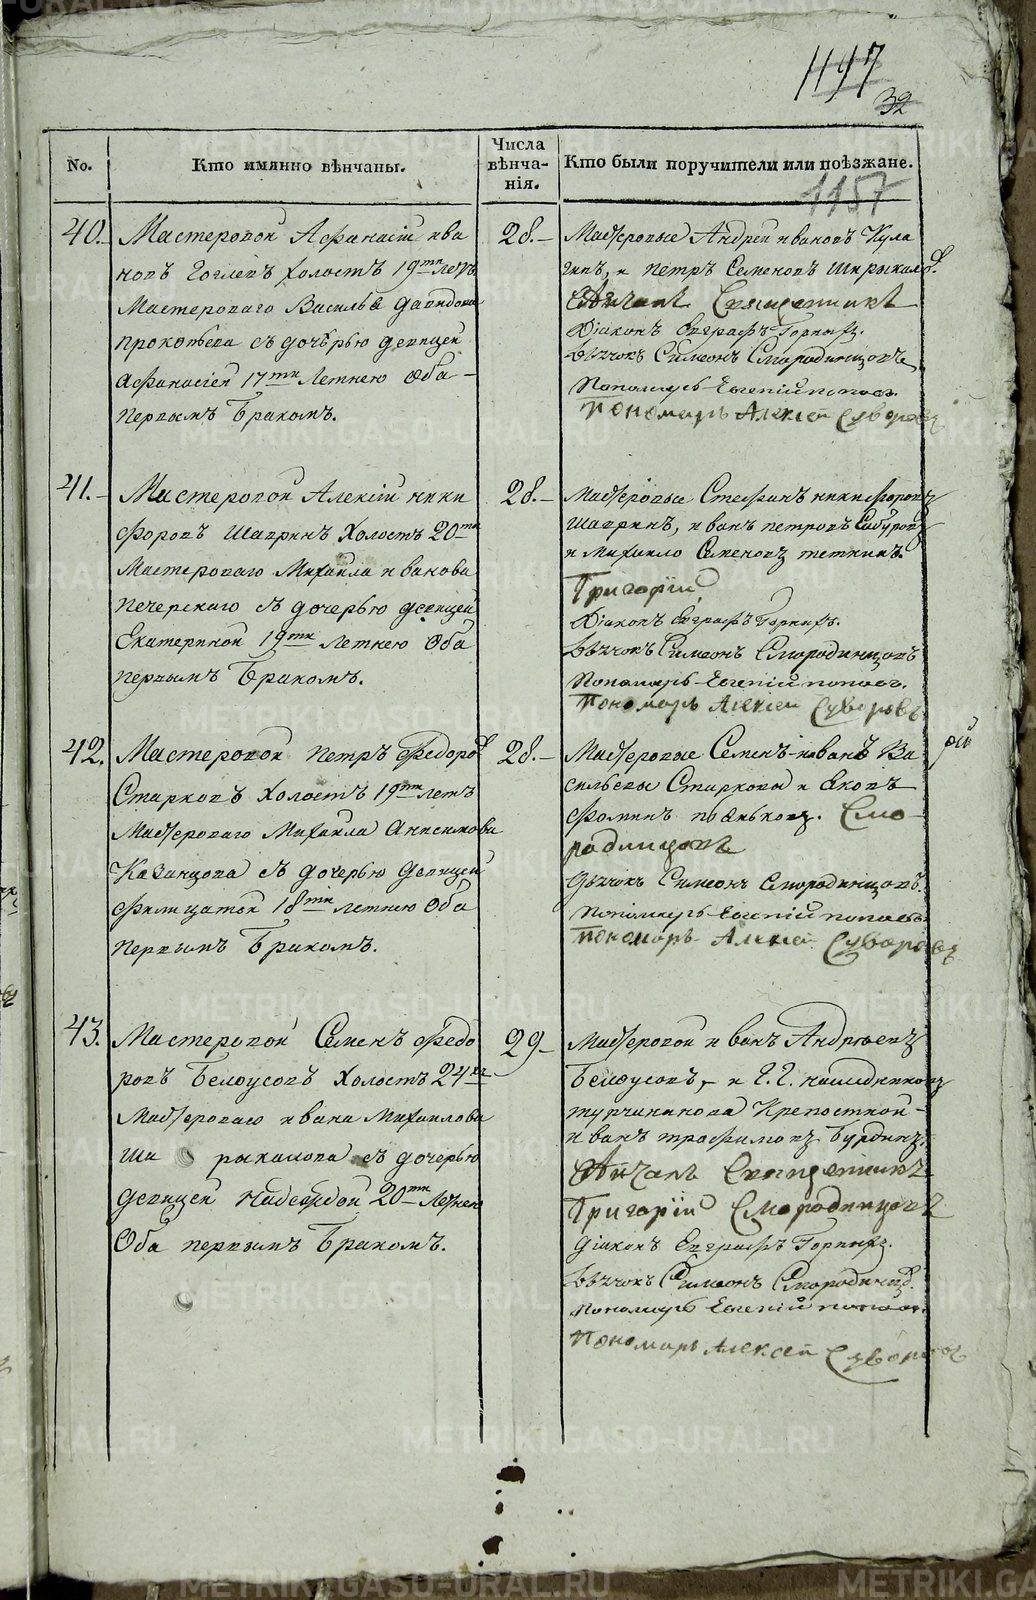 1197
32
No.
Кто имянно вѣнчаны.
Числа вѣнча-
нія.
Кто были поручители или поѣзжане.
1157
40.
Мастеровой Афанасій ива
новъ холостъ 19ти летъ
Мастероваго Василья давидова
прокопьева съ дочерью девицей
Афанасіей 17ти летнею Оба
первымъ бракомъ.
28.
Мастеровые Андрей ивановъ Кула
гинъ, и петръ Семеновъ Ширыкало
Вѣнчалъ Священникъ
Діаконъ Евграфъ Горныхъ.
Дьячокъ Симеонъ Смородинцовъ
Пономарь Евгеній поповъ.
Пономарь Алексѣй Суворовъ
41.
Мастеровой Алексій ники
форовъ Шавринъ Холостъ 20ти
Мастероваго Михаила иванова
печерскаго съ дочерью девицей
Екатериной 19ти летнею Оба
первымъ бракомъ.
28.
Мастеровые Стефанъ никифоровъ
Шавринъ, иванъ петровъ
и михайло Семеновъ
Григорій
Діаконъ Евграфъ Горныхъ.
Дьячокъ Симеонъ Смородинцовъ
Пономарь Евгеній поповъ.
Пономарь Алексѣй Суворовъ
42.
Мастеровой петръ федоров
Старковъ холостъ 19ти летъ
Мастероваго Михаила Анисимова
Казанцова съ дочерью девицей
фелицатой 18ти летнею Оба
первымъ бракомъ.
28.
Мастеровые Семенъ иванъ Ва
сильевы Старковы и Яковъ
фоминъ Смо
родинцовъ
рій
Дьячокъ Симеонъ Смородинцовъ.
Пономарь Евгеній поповъ
Пономарь Алексѣй Суворовъ
43.
Мастеровой Семенъ федо
ровъ Белоусовъ холостъ 24хъ
Мастероваго ивана Михайлова
Ши рыкалова съ дочерью
девицей 20ти летнею
Оба первымъ бракомъ.
29
Мастеровой иванъ Андреевъ
Белоусовъ, и Г.Г. наследниковъ
турчанинова Крепостной
иванъ трофимовъ Бурдинъ.
Вѣнчалъ Священникъ
Григорій Смородинцовъ
Діаконъ Евграфъ Горныхъ.
Дьячокъ Симеонъ Смородинцовъ
Пономарь Евгеній поповъ.
Пономарь Алексѣй Суворовъ
METRIKI.GASO-URAL.RU